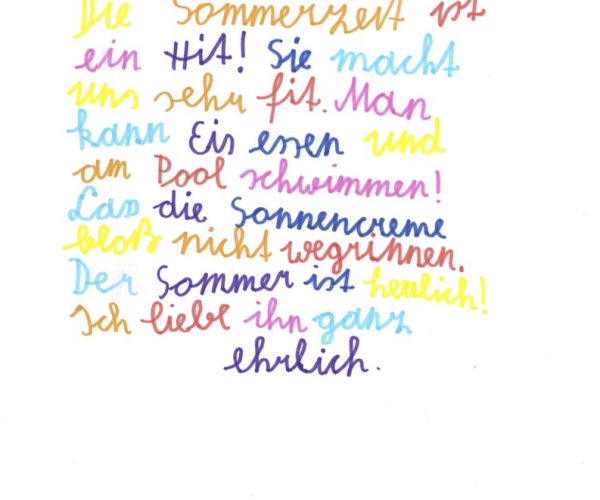 Die Sommerzeit ist
ein Hit! Sie macht
uns sehr fit. Man
kann Eis essen und
am Pool schwimmen!
Las die Sonnencreme
bloß nicht wegrinnen.
Der Sommer ist herrlich!
Ich liebe ihn ganz
ehrlich.